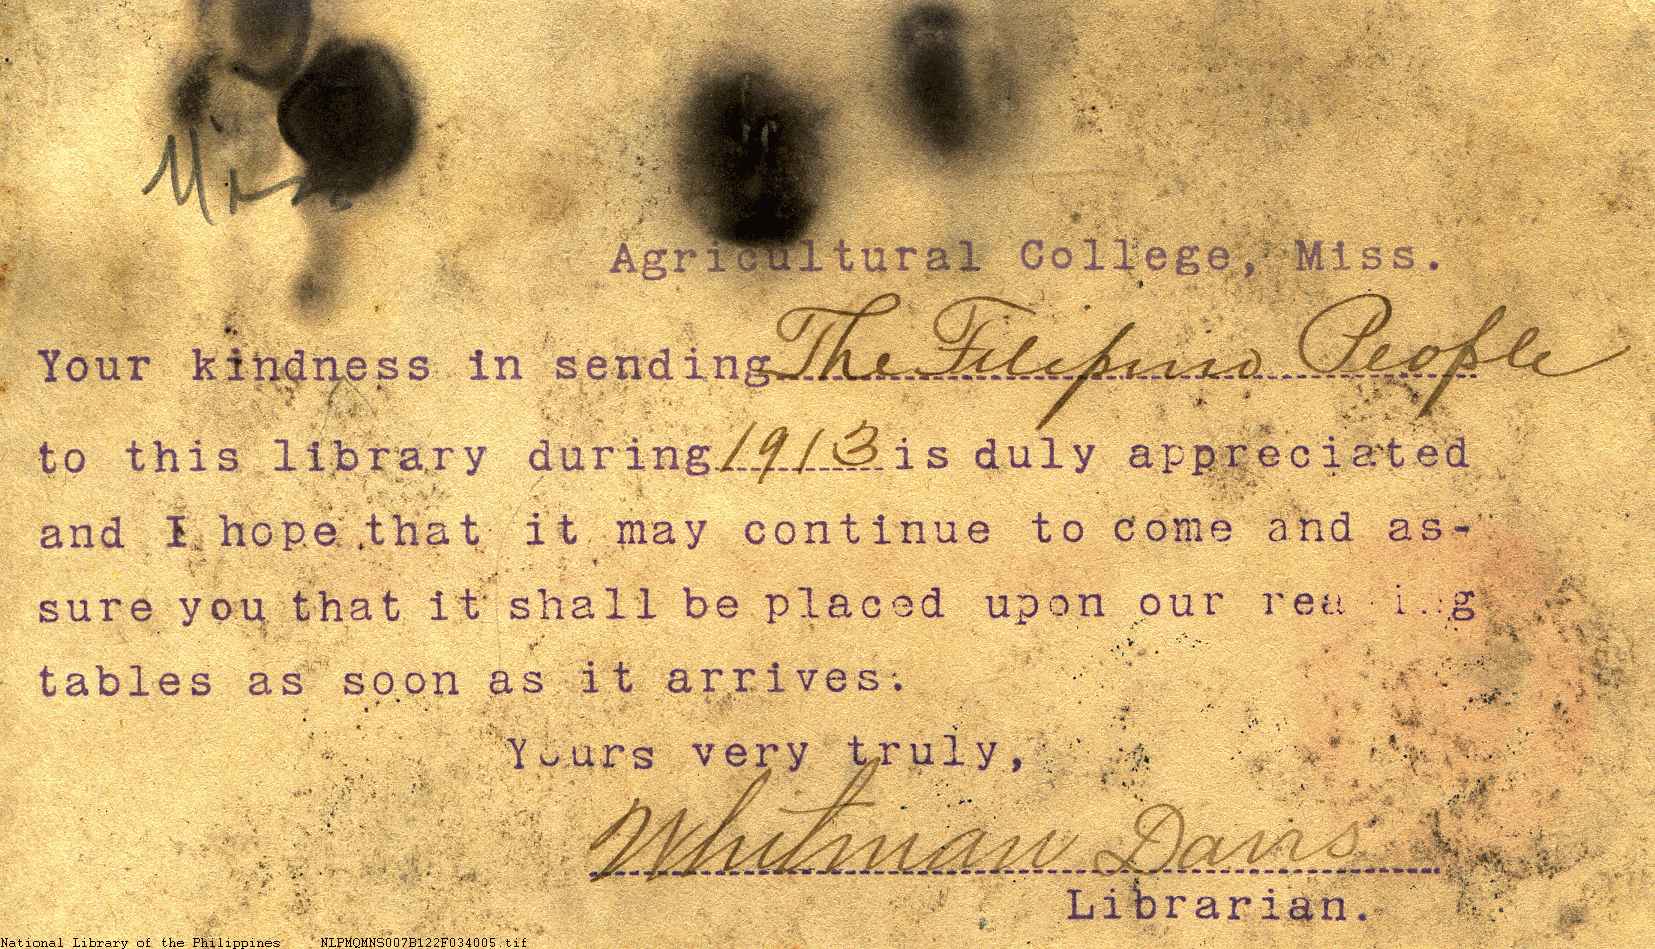 Miss
Agricultural College, Miss.
Your kindness in sending The Filipino People
to this library during 1913 is duly appreciated
and I hope that it may continue to come and as-
sure you that it shall be placed upon our reading
tables as soon as it arrives.
Yours very truly,
Whitman Davis
Librarian.
National Library of the Philippines NLPMQMNS007B122F034005.tif